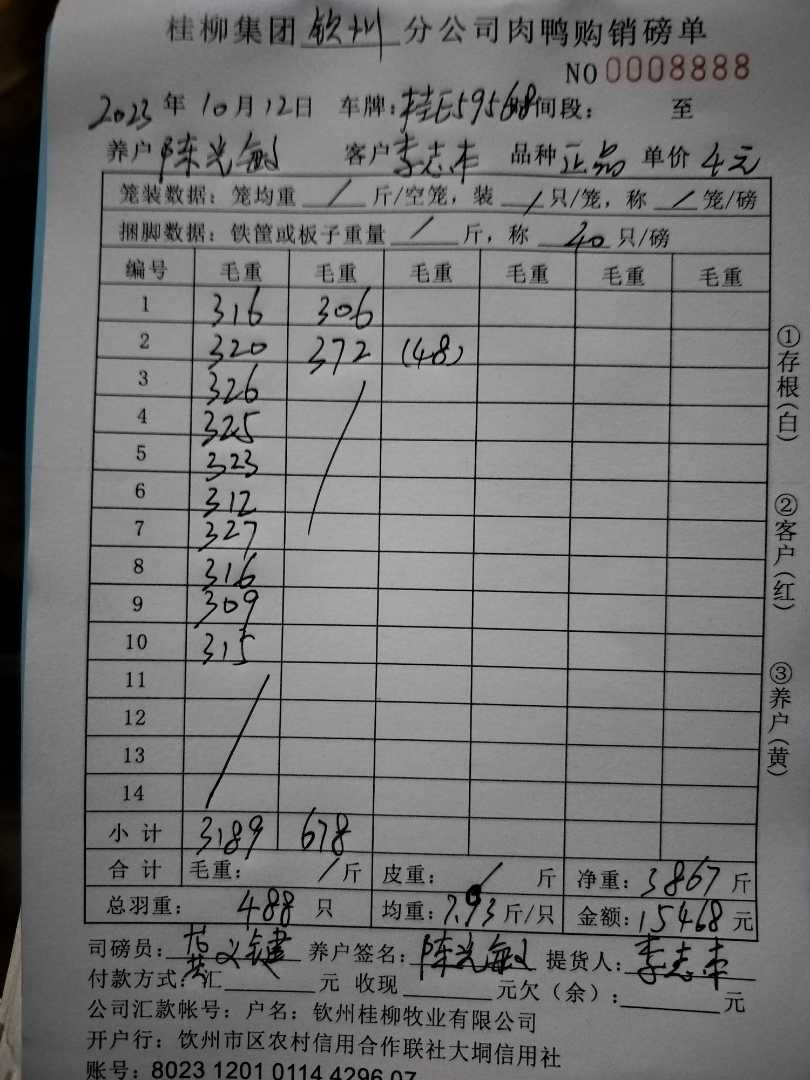 桂柳集团钦州分公司肉鸭购销磅单
NO 0008888
2023年10月12日 车牌:桂E59568 时间段: 至
养户 陈光敏 客户 李志丰 品种 正品 单价 4元
笼装数据: 笼均重 / 斤/空笼, 装 / 只/笼, 称 / 笼/磅
捆脚数据: 铁筐或板子重量 / 斤, 称 40 只/磅
编号 毛重 毛重 毛重 毛重 毛重 毛重
1 316 306
2 320 372 (48)
3 326
4 325
5 323
6 312
7 327
8 316
9 309
10 315
11
12
13
14
小计 3189 678
合计 毛重: / 斤 皮重: / 斤 净重: 3867 斤
总羽重: 488 只 均重: 7.93 斤/只 金额: 15468 元
司磅员: 义键 养户签名: 陈光敏 提货人: 李志丰
付款方式: 汇 元 收现 元欠(余): 元
公司汇款帐号: 户名: 钦州桂柳牧业有限公司
开户行: 钦州市区农村信用合作联社大垌信用社
账号: 8023 1201 0114 4296 07
①存根(白) ②客户(红) ③养户(黄)